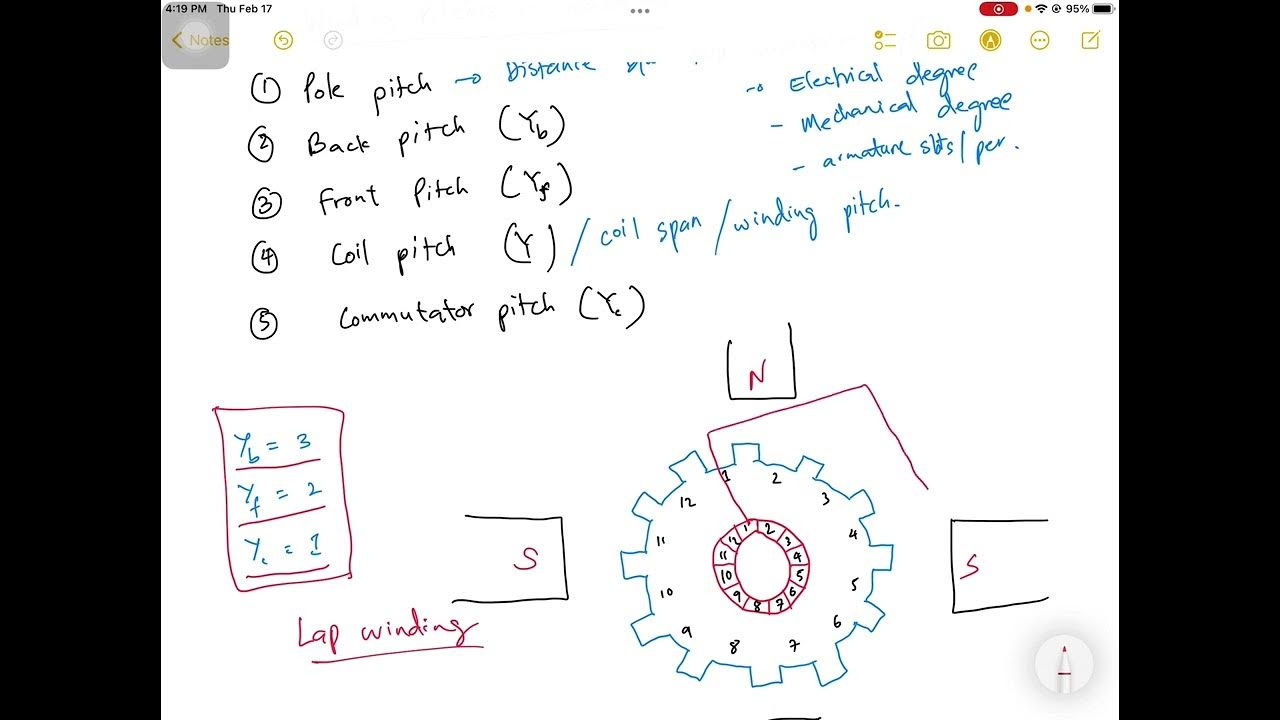 4:19 PM Thu Feb 17
95%
Notes
① Pole pitch → Distance
→ Electrical degree
- Mechanical degree
- armature slots/per.
② Back pitch (Yb)
③ Front Pitch (Yf)
④ Coil pitch (Y) / coil span / winding pitch.
⑤ Commutator pitch (Yc)
N
Yb = 3
Yf = 2
Yc = 1
Lap winding
S
S
1
2
3
4
5
6
7
8
9
10
11
12
1
2
3
4
5
6
7
8
9
10
11
12